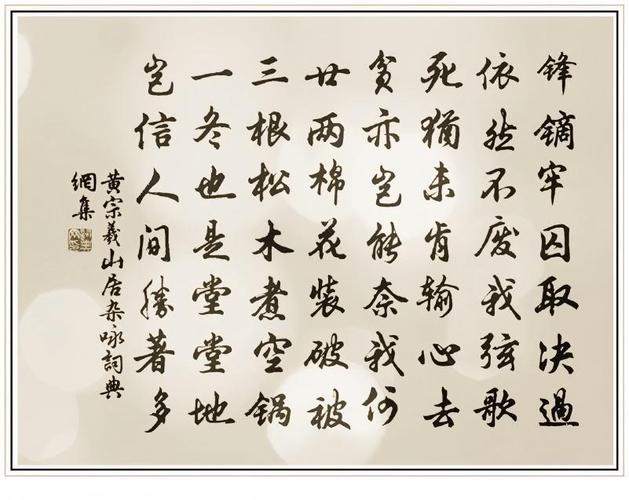 锋镝牢囚取决过
依然不废我弦歌
死犹未肯输心去
贫亦岂能奈我何
廿两棉花装破被
三根松木煮空锅
一冬也是堂堂地
岂信人间胜著多
黄宗羲山居杂咏詞典
網集